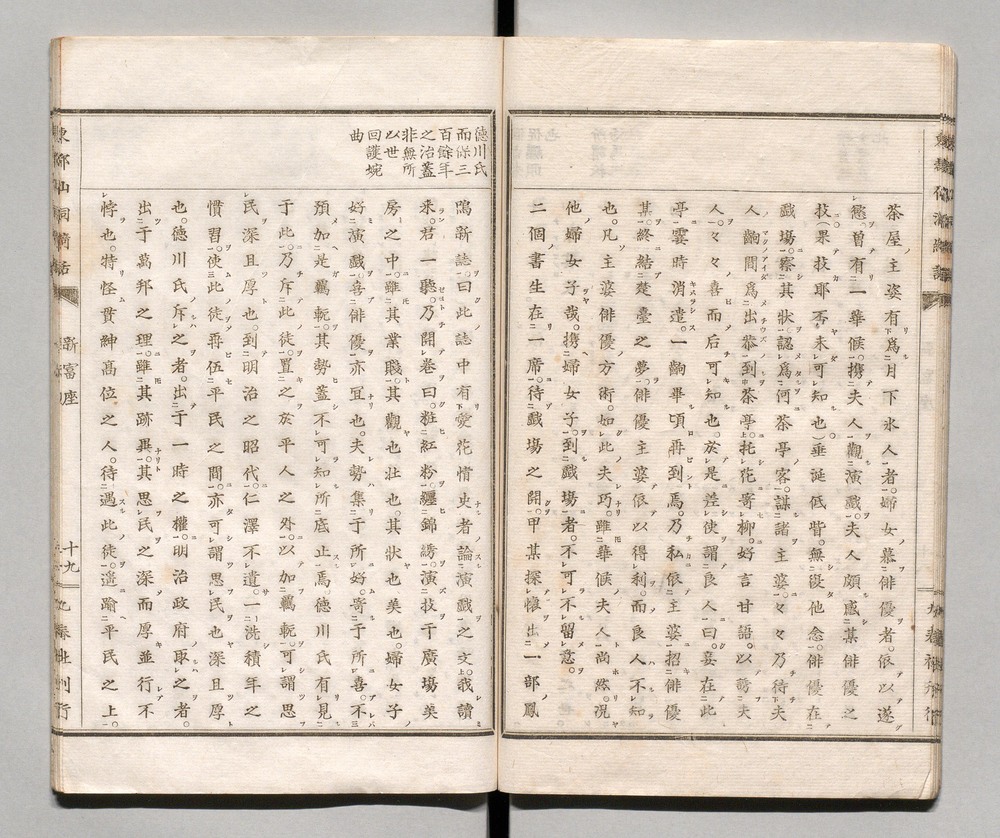 茶屋主婆有爲月下氷人者。婦女慕俳優者。依以遂
慾。曾有一華候。携夫人觀演戲。夫人頗惑某俳優之
技。果技耶否。未可知也)垂誕低眥。無段他念。俳優在
戲場。察其状。認爲何茶亭客。謀諸主婆。々々乃待夫
人齣間爲出恭。到茶亭。托花寄柳。好言甘語。以誘夫
人。々々喜而后可知也。於是差使謂良人曰。妾在此
亭。霎時消遣。一齣畢頃再到焉。乃私依主婆招俳優
某。終結楚臺之夢。俳優主婆依以得利。而良人不知
也。凡主婆俳優方術。如此夫巧。雖華候夫人尚然。况
他婦女子哉。携婦女子。到戲場者。不可不留意。
二個書生在一席。待戲場之開。甲某探懷出一部鳳
德川氏
而保三
百餘年
之治蓋
非無所
以世
回護婉
曲
鳴新誌。曰此誌中有愛花情史者論演戲之文。我讀
来。君一聽。乃開卷曰。粧紅粉。纒錦綉。演技于廣場美
房之中。雖其業賤。其觀也壯也。其状也美也。婦女子
好演戲。喜俳優。亦宜也。夫勢集于所好。寄于所喜。不
預加是羈軛。其勢蓋不可知所底止焉。德川氏有見
于此。乃斥此徒。置之於平人之外。以加羈軛。可謂思
民深且厚也。到明治之昭代。仁澤不遺。一洗積年之
慣習。使此徒再伍平民之間。亦可謂思民也深且厚
也。德川氏斥之者。出于一時之權。明治政府取之者。
出于萬邦之理。雖其跡異。其思民之深而厚並行不
悖也。特怪貫紳高位之人。待遇此徒。遥踰平民之上。
新富座
十九
九春社刊行